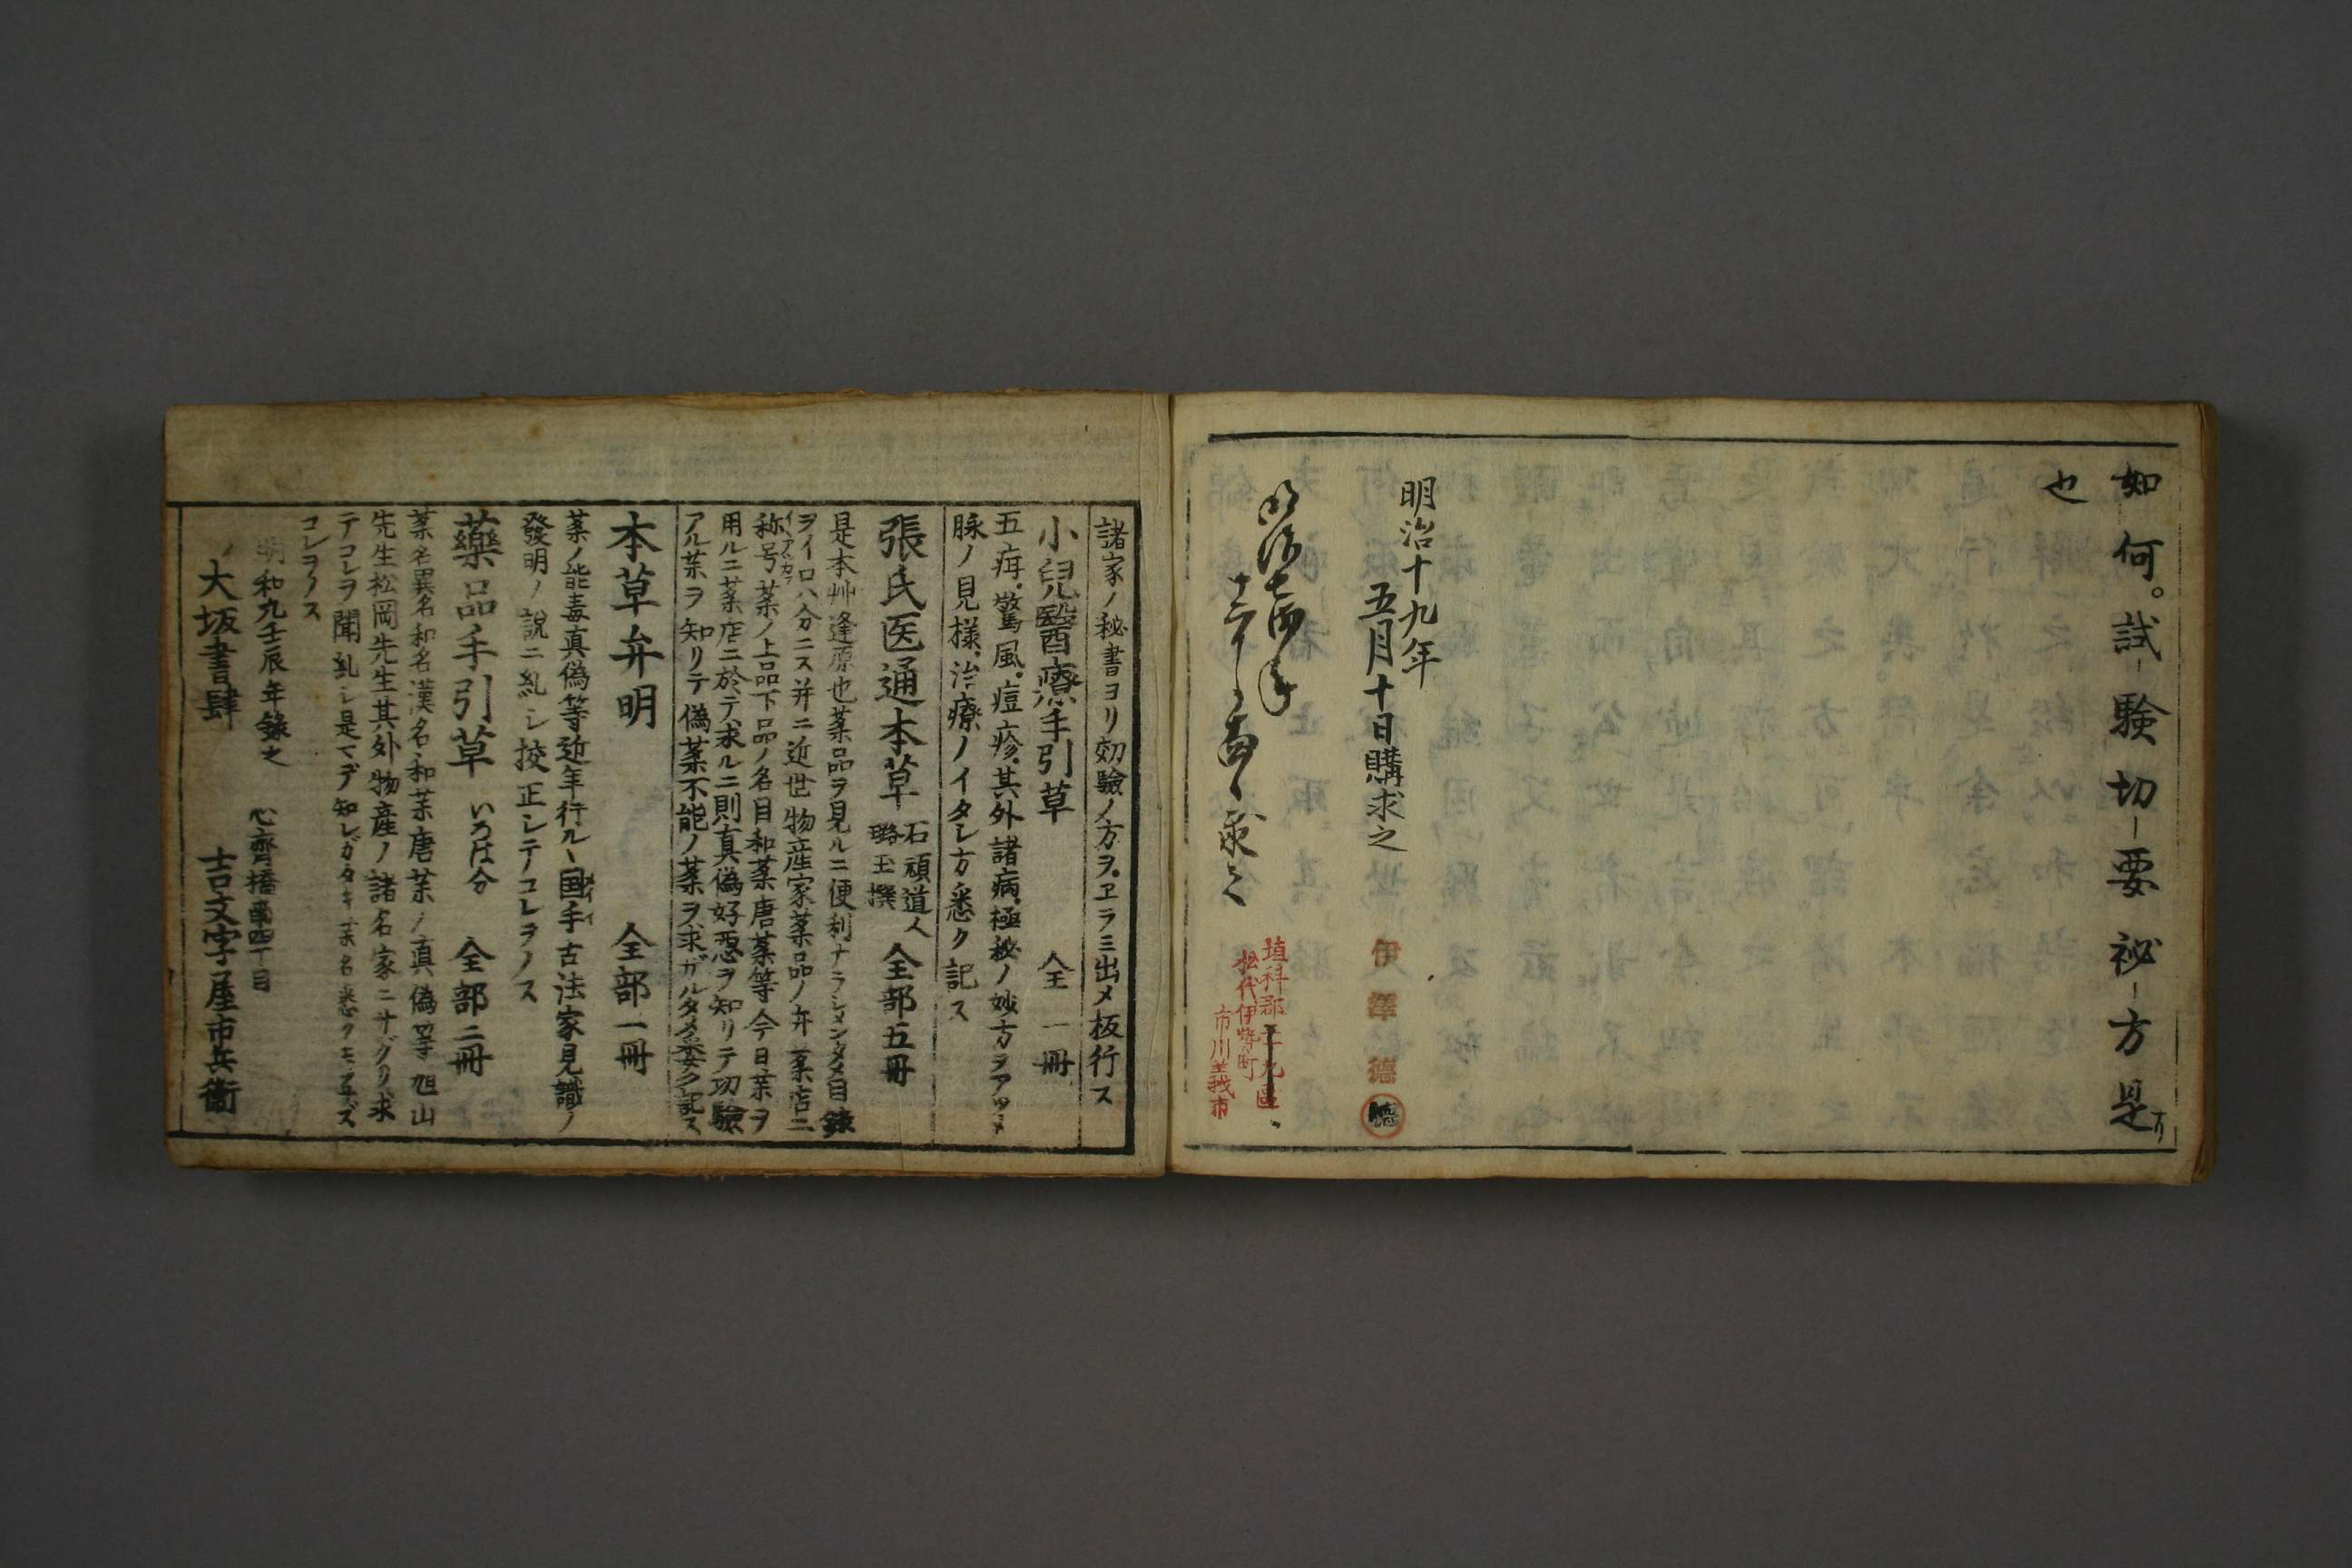 如何。試験切要祕方是
也
明治十九年
五月十日購求之
伊澤德
德
明治
求之
埴科郡
松代伊勢町
市川義市
諸家ノ秘書ヨリ効驗ノ方ヲヱラミ出メ板行ス
小兒醫療手引草 全一冊
五疳。驚風。痘疹。其外諸病極秘ノ妙方ヲアツメ
脉ノ見様。治療ノイタシ方悉ク記ス
張氏医通本草 石頑道人 璐玉撰 全部五冊
是本艸逢原也薬品ヲ見ルニ便利ナラシメンタメ目録
ヲイロハ分ニス并ニ近世物産家薬品ノ弁薬店ニ
称号薬ノ上品下品ノ名目和薬唐薬等今日薬ヲ
用ルニ薬店ニ於テ求ルニ則真偽好悪ヲ知リテ功驗
アル薬ヲ知リテ偽薬不能ノ薬ヲ求ガルタメ委ク記ス
本草弁明 全部一冊
薬ノ能毒真偽等近年行ル丶国手古法家見識ノ
發明ノ説ニ糺シ挍正シテコレヲノス
藥品手引草 いろは分 全部二冊
薬名異名和名漢名和薬唐薬ノ真偽等旭山
先生松岡先生其外物産ノ諸名家ニサグリ求
テコレヲ聞糺シ是マデ知レガタキ薬名悉ク
コレヲノス
明和九壬辰年錄之 心齊橋南四丁目
大坂書肆 吉文字屋市兵衛